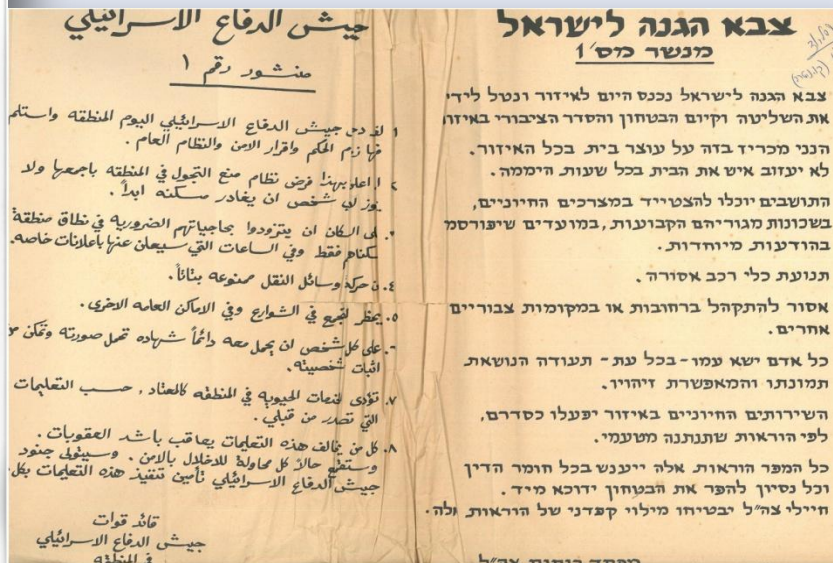 צבא הגנה לישראל
מנשר מס' 1
צבא הגנה לישראל נכנס היום לאיזור ונטל לידי
את השליטה וקיום הבטחון והסדר הציבורי באיזור
הנני מכריז בזה על עוצר בית בכל האיזור.
לא יעזוב איש את הבית בכל שעות היממה.
התושבים יוכלו להצטייד במצרכים החיוניים,
בשכונות מגוריהם הקבועות, במועדים שיפורסמו
בהודעות מיוחדות.
תנועת כלי רכב אסורה.
אסור להתקהל ברחובות או במקומות צבוריים
אחרים.
כל אדם ישא עמו - בכל עת - תעודה הנושאת
תמונתו והמאפשרת זיהויו.
השירותים החיוניים באיזור יפעלו כסדרם,
לפי הוראות שתנתנה מטעמי.
כל המפר הוראות אלה ייענש בכל חומר הדין
וכל נסיון להפר את הבטחון ידוכא מיד.
חיילי צה"ל יבטיחו מילוי קפדני של הוראות אלה.
צה"ל
جيش الدفاع الاسرائيلي
منشور رقم ١
١ لقد دخل جيش الدفاع الاسرائيلي اليوم المنطقه واستلم
فيها زمام الحكم واقرار الامن والنظام العام.
٢ بهذا فرض نظام منع التجول في المنطقه باجمعها ولا
يجوز لاي شخص ان يغادر مسكنه ابداً.
السكان ان يتزودوا بحاجياتهم الضروريه في نطاق منطقة
سكناهم فقط وفي الساعات التي سيعلن عنها باعلانات خاصه.
٤. حركة وسائل النقل ممنوعه بتاتاً.
٥. يحظر التجمع في الشوارع وفي الاماكن العامه الاخرى.
على كل شخص ان يحمل معه دائماً شهاده تحمل صورته وتمكن من
اثبات شخصيته.
٧. تؤدى الخدمات الحيويه في المنطقه كالمعتاد، حسب التعليمات
التي تصدر من قبلي.
٨. كل من يخالف هذه التعليمات يعاقب باشد العقوبات.
وستقمع حالاً كل محاولة للاخلال بالامن. وسيتولى جنود
جيش الدفاع الاسرائيلي تأمين تنفيذ هذه التعليمات بكل
قائد قوات
جيش الدفاع الاسرائيلي
في المنطقه